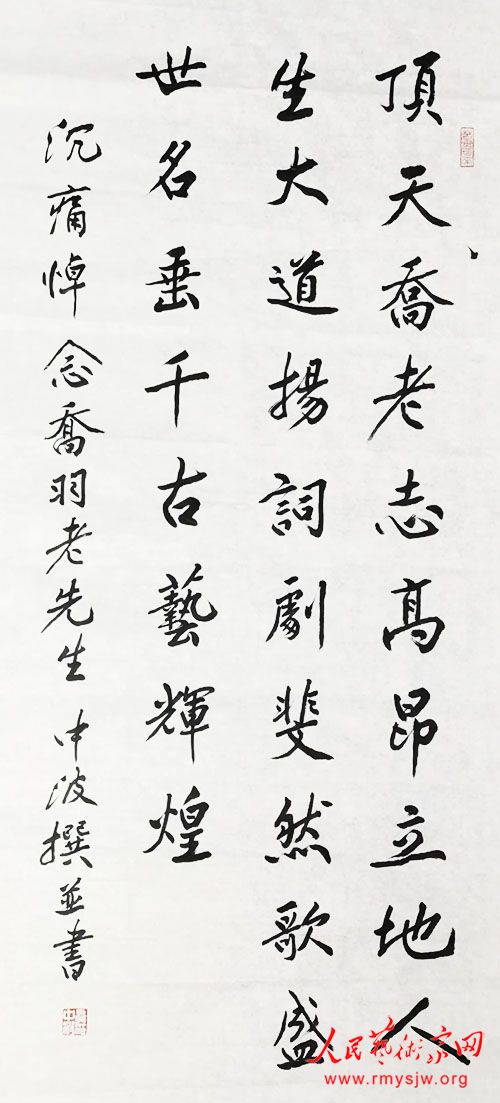 頂天喬老志高昂立地人
生大道揚詞劇斐然歌盛
世名垂千古藝輝煌
沉痛悼念喬羽老先生 中波撰並書
人民艺术家网
www.rmysjw.org